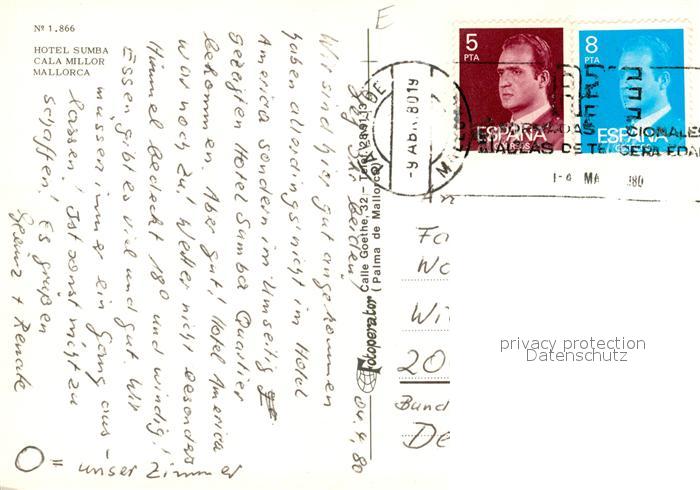 Nº 1.866
HOTEL SUMBA
CALA MILLOR
MALLORCA
E
5
PTA
ESPAÑA
8
PTA
ESPAÑA
-9 ABR. 80 19
1-4 MA 980
Calle Goethe, 32 - Telf.
(Palma de Mallorca)
Fotoperator
04.4.80
Wir sind hier gut angekommen
haben allerdings nicht im Hotel
America sondern im Umseitig
gezeigten Hotel Sumba Quartier
bekommen. Aber gut! Hotel America
war noch zu! Wetter nicht besonders
Himmel bedeckt 18° und windig!
Essen gibt es viel und gut. Wir
müssen immer ein Gang aus-
lassen! Ist sonst nicht zu
schaffen! Es grüßen
Heinz + Renate
O = unser Zimmer
An
Fa
Wi
20
Bund
De
privacy protection
Datenschutz